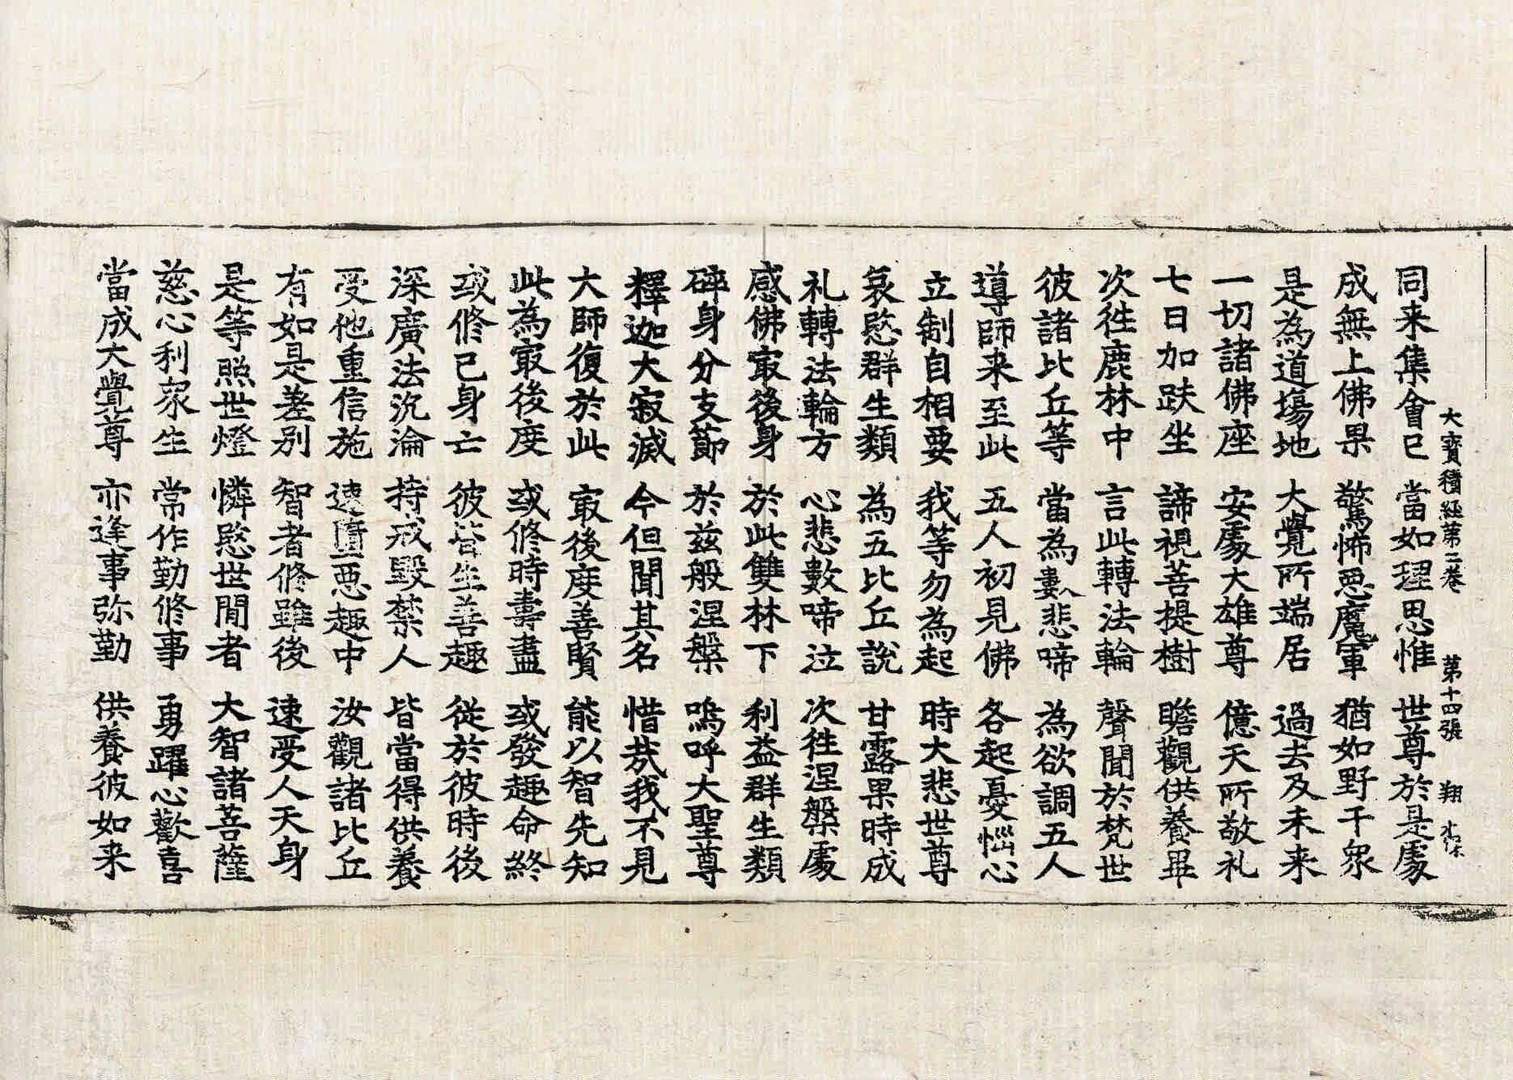 大寶積經第二卷　第十四張　翔
同来集會已　當如理思惟　世尊於是處
成無上佛果　驚怖惡魔軍　猶如野干衆
是為道場地　大覺所端居　過去及未来
一切諸佛座　安處大雄尊　億天所敬礼
七日加趺坐　諦視菩提樹　瞻觀供養畢
次徃鹿林中　言此轉法輪　聲聞於梵世
彼諸比丘等　當為數悲啼　為欲調五人
導師来至此　五人初見佛　各起憂惱心
立制自相要　我等勿為起　時大悲世尊
哀愍群生類　為五比丘說　甘露果時成
礼轉法輪方　心悲數啼泣　次徃涅槃處
感佛㝡後身　於此雙林下　利益群生類
碎身分支節　於兹般涅槃　嗚呼大聖尊
釋迦大寂滅　今但聞其名　惜哉我不見
大師復於此　㝡後度善賢　能以智先知
此為㝡後度　或修時壽盡　或發趣命終
或修已身亡　彼皆生善趣　從於彼時後
深廣法沉淪　持戒毀禁人　皆當得供養
受他重信施　速墮惡趣中　汝觀諸比丘
有如是差别　智者修雖後　速受人天身
是等照世燈　憐愍世間者　大智諸菩薩
慈心利衆生　常作勤修事　勇躍心歡喜
當成大覺尊　亦逢事弥勤　供養彼如来